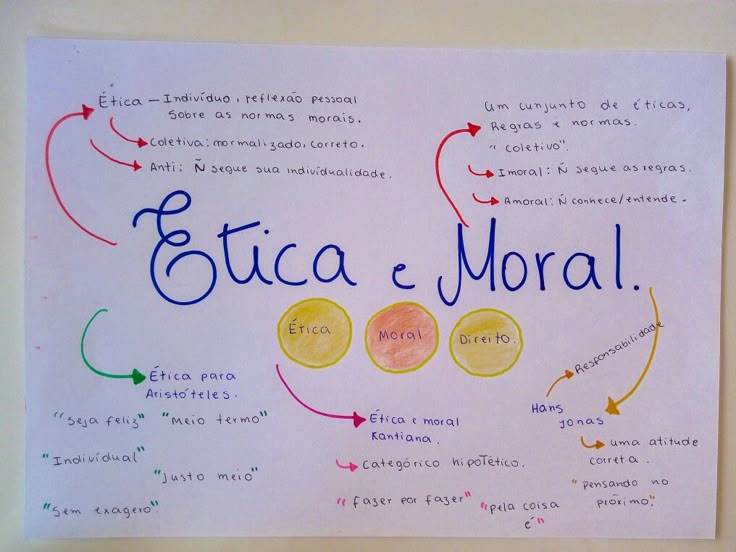 Ética — Indivíduo, reflexão pessoal
sobre as normas morais.
Coletiva: normalizado, correto.
Anti: Ñ segue sua individualidade.
um cunjunto de éticas,
Regras e normas.
"coletivo".
Imoral: Ñ segue as regras.
Amoral: Ñ conhece/entende.
Ética e Moral.
Ética
Moral
Direito.
Ética para
Aristóteles.
"Seja feliz" "Meio termo"
"Individual"
"Justo meio"
"Sem exagero"
Ética e moral
Kantiana.
Categórico hipotético.
"fazer por fazer" "pela coisa
é"
Responsabilidade
Hans
Jonas
uma atitude
correta.
"Pensando no
próximo".